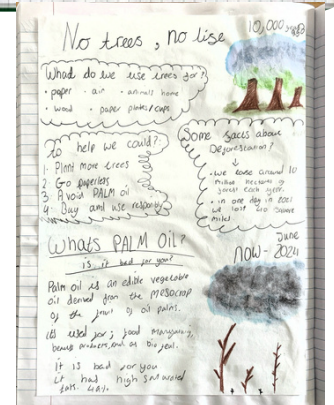 No trees, no lise
10,000
What do we use trees for?
• paper • air • animals home
• wood • paper plates/cups
To help we could?:
1. Plant more trees
2. Go paperless
3. Avoid PALM oil
4. Buy and use responsibly
Some facts about
Deforestation?
• we loose around 10
million hectares of
forest each year.
• in one day in 2021
we lost square
miles.
June
NOW - 2024
Whats PALM OIL?
is it bad for you?
Palm oil is an edible vegetable
oil derived from the mesocrop
of the fruit of oil palms.
its used for; food manufacturing,
beauty products, and as bio fuel.
it is bad for you
it had high saturated
fats.